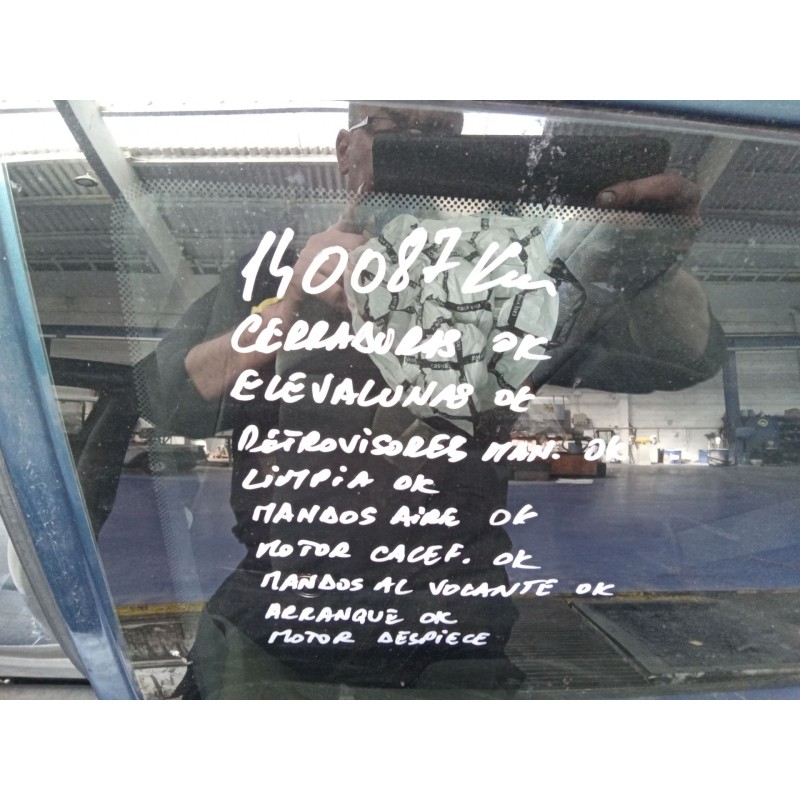 140087 Km
CERRADURAS OK
ELEVALUNAS OK
RETROVISORES MAN. OK
LIMPIA OK
MANDOS AIRE OK
MOTOR CALEF. OK
MANDOS AL VOLANTE OK
ARRANQUE OK
MOTOR DESPIECE